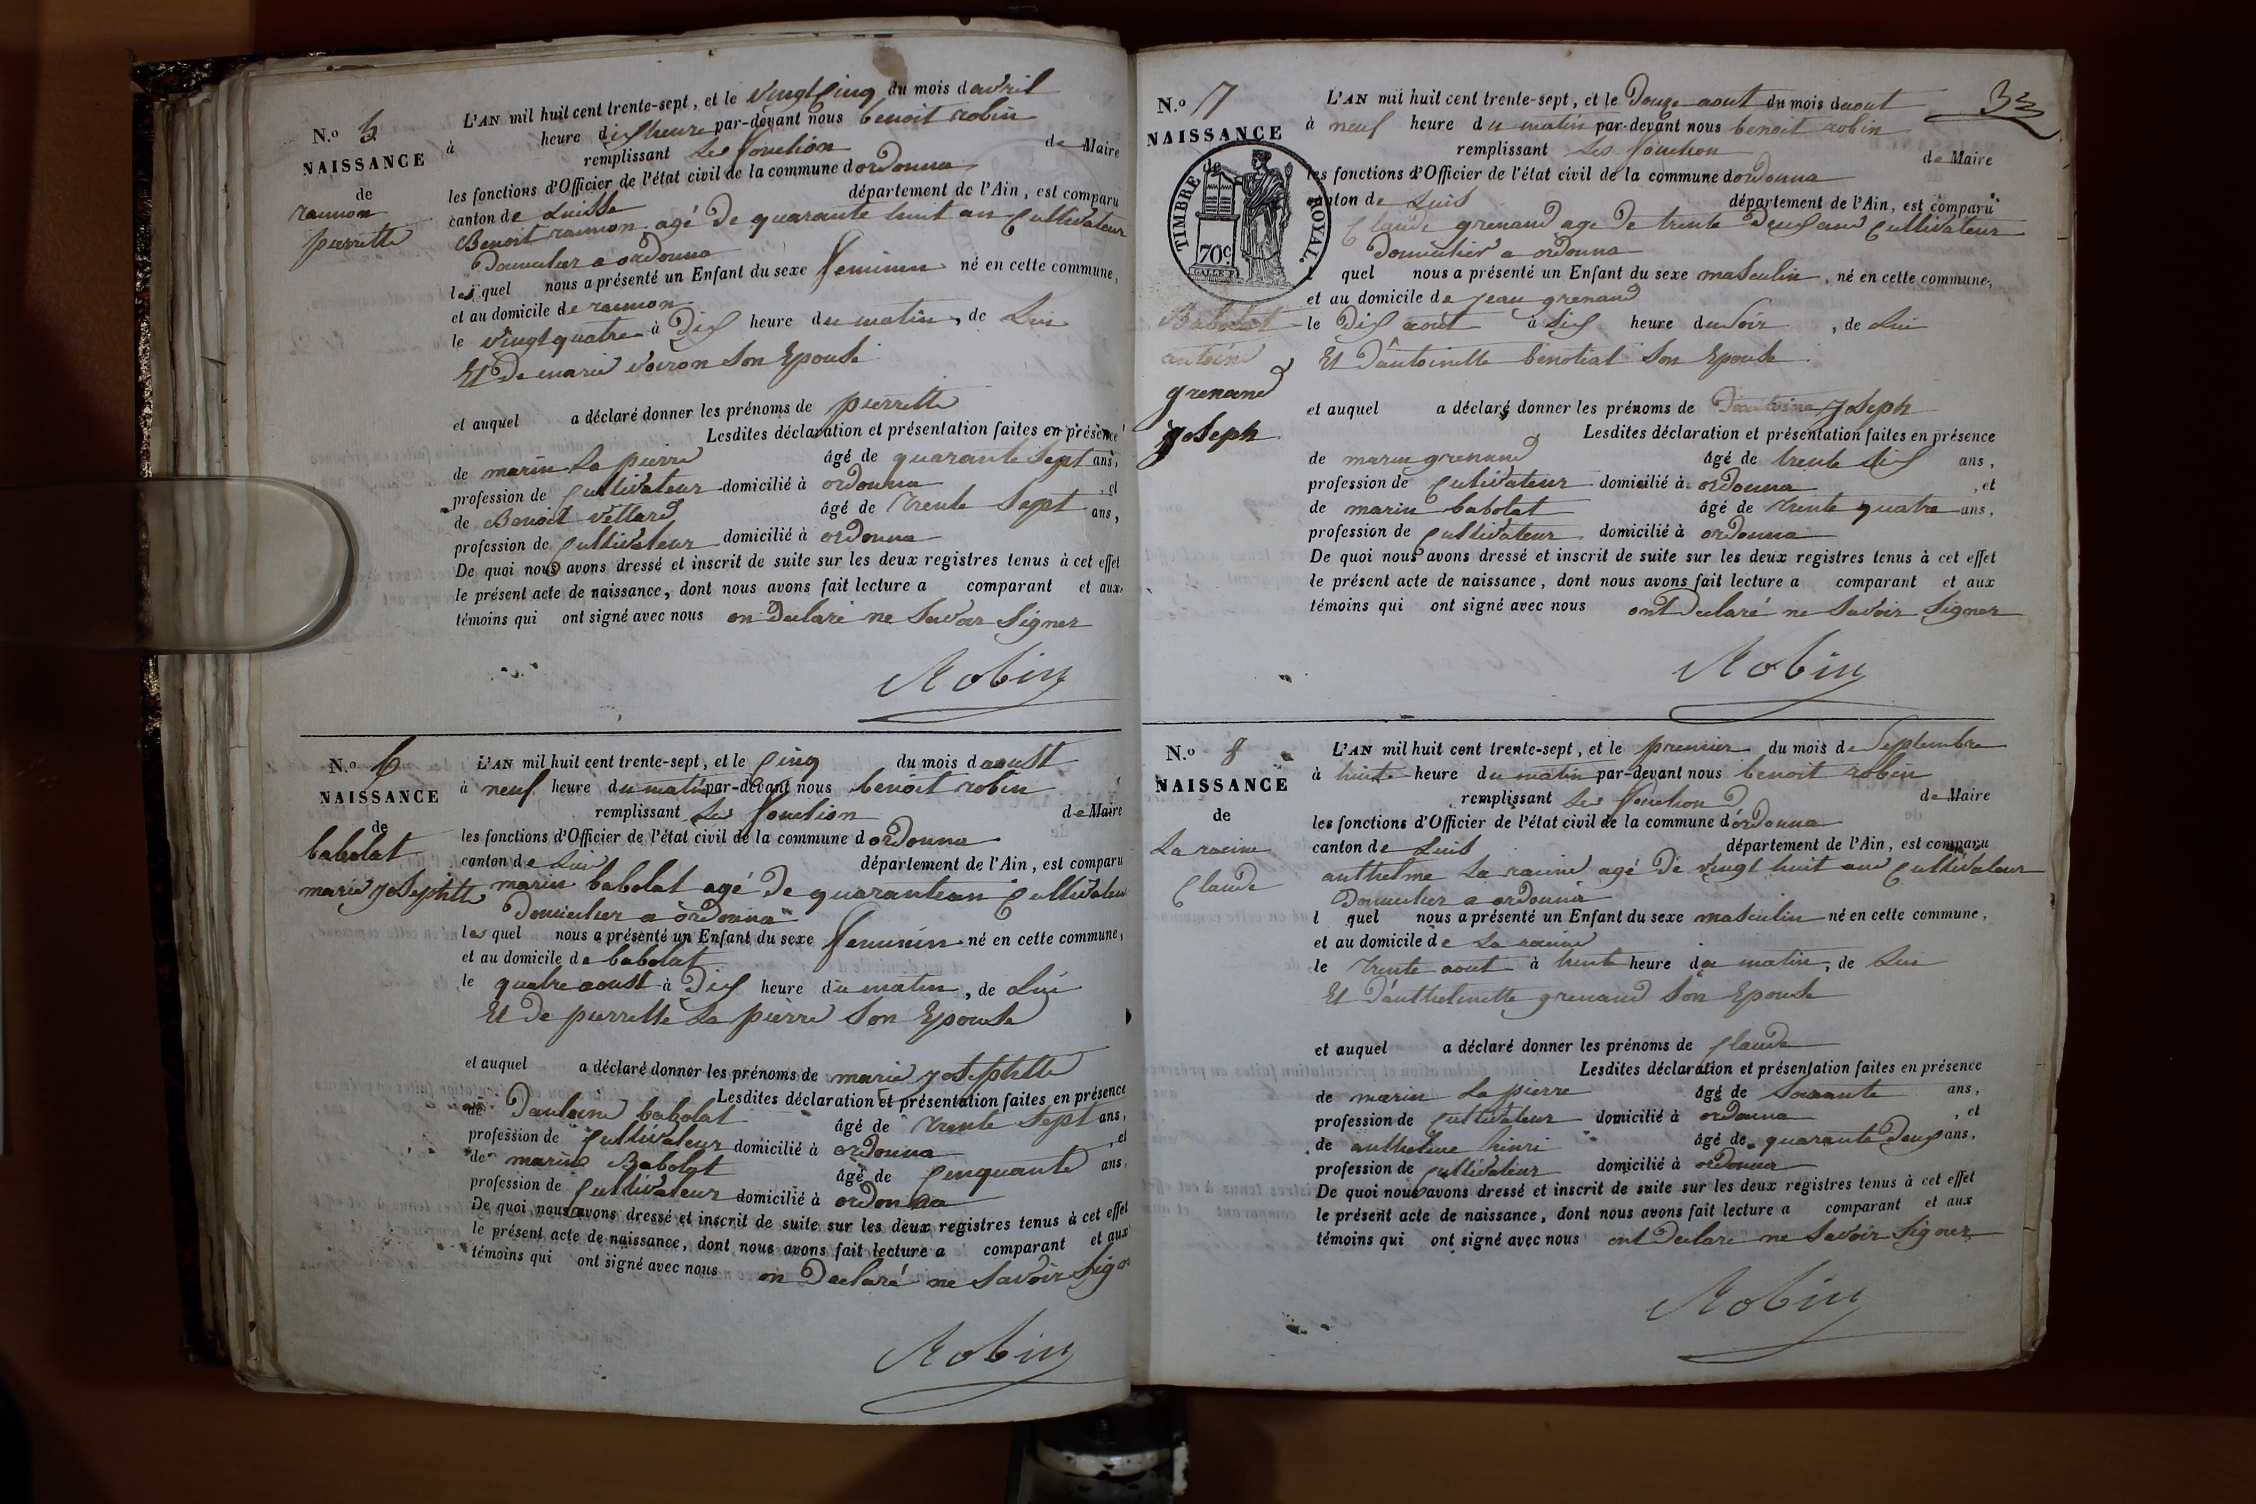 N.º 5
NAISSANCE
de
raumon
pierrette
L'AN mil huit cent trente-sept, et le vingt cinq du mois d avril
à heure dix heure par-devant nous benoit robin
remplissant Les fonction de Maire
les fonctions d'Officier de l'état civil de la commune d ordonna
canton de Luisse département de l'Ain, est comparu
Benoit raumon agé De quarante huit an Cultivateur
Domicilier a ordonna
les quel nous a présenté un Enfant du sexe feminin né en cette commune,
et au domicile de raumon
le vingt quatre à Dix heure du matin, de Lui
Et De marie voiron Son Epouse
et auquel a déclaré donner les prénoms de pierrette
Lesdites déclaration et présentation faites en présence
de marin La pierre âgé de quarante Sept ans,
profession de Cultivateur domicilié à ordonna, et
de Benoit Vettard âgé de Trente Sept ans,
profession de Cultivateur domicilié à ordonna
De quoi nous avons dressé et inscrit de suite sur les deux registres tenus à cet effet
le présent acte de naissance, dont nous avons fait lecture a comparant et aux
témoins qui ont signé avec nous on Declaré ne Savoir Signer
Robin
N.º 6
NAISSANCE
de
babolat
marie josephtte
L'AN mil huit cent trente-sept, et le Cinq du mois d aoust
à neuf heure du matin par-devant nous benoit robin
remplissant Les fonction de Maire
les fonctions d'Officier de l'état civil de la commune d ordonna
canton de Lui département de l'Ain, est comparu
marin babolat agé De quarantean Cultivateur
Domicilier a ordonna
les quel nous a présenté un Enfant du sexe feminin né en cette commune,
et au domicile de babolat
le quatre aoust à Dix heure du matin, de Lui
Et De pierrette La pierre Son Epouse
et auquel a déclaré donner les prénoms de marie josephtte
Lesdites déclaration et présentation faites en présence
de Dantoine babolat âgé de Trente Sept ans,
profession de Cultivateur domicilié à ordonna, et
de marin Babolat âgé de Cenquante ans,
profession de Cultivateur domicilié à ordonna
De quoi nous avons dressé et inscrit de suite sur les deux registres tenus à cet effet
le présent acte de naissance, dont nous avons fait lecture a comparant et aux
témoins qui ont signé avec nous on Declaré ne Savoir Sign
Robin
33
N.º 7
NAISSANCE
de
TIMBRE ROYAL.
70c
Babolat
antoine
grenand
joseph
L'AN mil huit cent trente-sept, et le Douze aout du mois daout
à neuf heure du matin par-devant nous benoit robin
remplissant Les fonction de Maire
les fonctions d'Officier de l'état civil de la commune dordonna
canton de Luis département de l'Ain, est comparu
Claude grenand age De trente Deux ans Cultivateur
Domicilier a ordonna
quel nous a présenté un Enfant du sexe masculin, né en cette commune,
et au domicile de jean grenand
le Dix aout à Six heure du soir, de Lui
Et D'antoinette benotiat Son Epouse
et auquel a déclaré donner les prénoms de Dantoine joseph
Lesdites déclaration et présentation faites en présence
de marin grenand âgé de trente Six ans,
profession de Cultivateur domicilié à ordonna, et
de marin babolat âgé de Trente quatre ans,
profession de Cultivateur domicilié à ordonna
De quoi nous avons dressé et inscrit de suite sur les deux registres tenus à cet effet
le présent acte de naissance, dont nous avons fait lecture a comparant et aux
témoins qui ont signé avec nous ont Declaré ne Savoir Signer
Robin
N.º 8
NAISSANCE
de
La racine
Claude
L'AN mil huit cent trente-sept, et le premier du mois de Septembre
à huite heure du matin par-devant nous benoit robin
remplissant Les fonction de Maire
les fonctions d'Officier de l'état civil de la commune d'ordonna
canton de Luis département de l'Ain, est comparu
anthelme La racine agé De vingt huit ans Cultivateur
Domicilier a ordonna
l quel nous a présenté un Enfant du sexe masculin né en cette commune,
et au domicile de La racine
le Trente aout à heure du matin, de Lui
Et D'anthelmette grenand Son Epouse
et auquel a déclaré donner les prénoms de Claude
Lesdites déclaration et présentation faites en présence
de marin La pierre âgé de ans,
profession de Cultivateur domicilié à ordonna, et
de anthelme hinri âgé de quarante Deux ans,
profession de Cultivateur domicilié à ordonna
De quoi nous avons dressé et inscrit de suite sur les deux registres tenus à cet effet
le présent acte de naissance, dont nous avons fait lecture a comparant et aux
témoins qui ont signé avec nous ont Declaré ne Savoir Signer
Robin